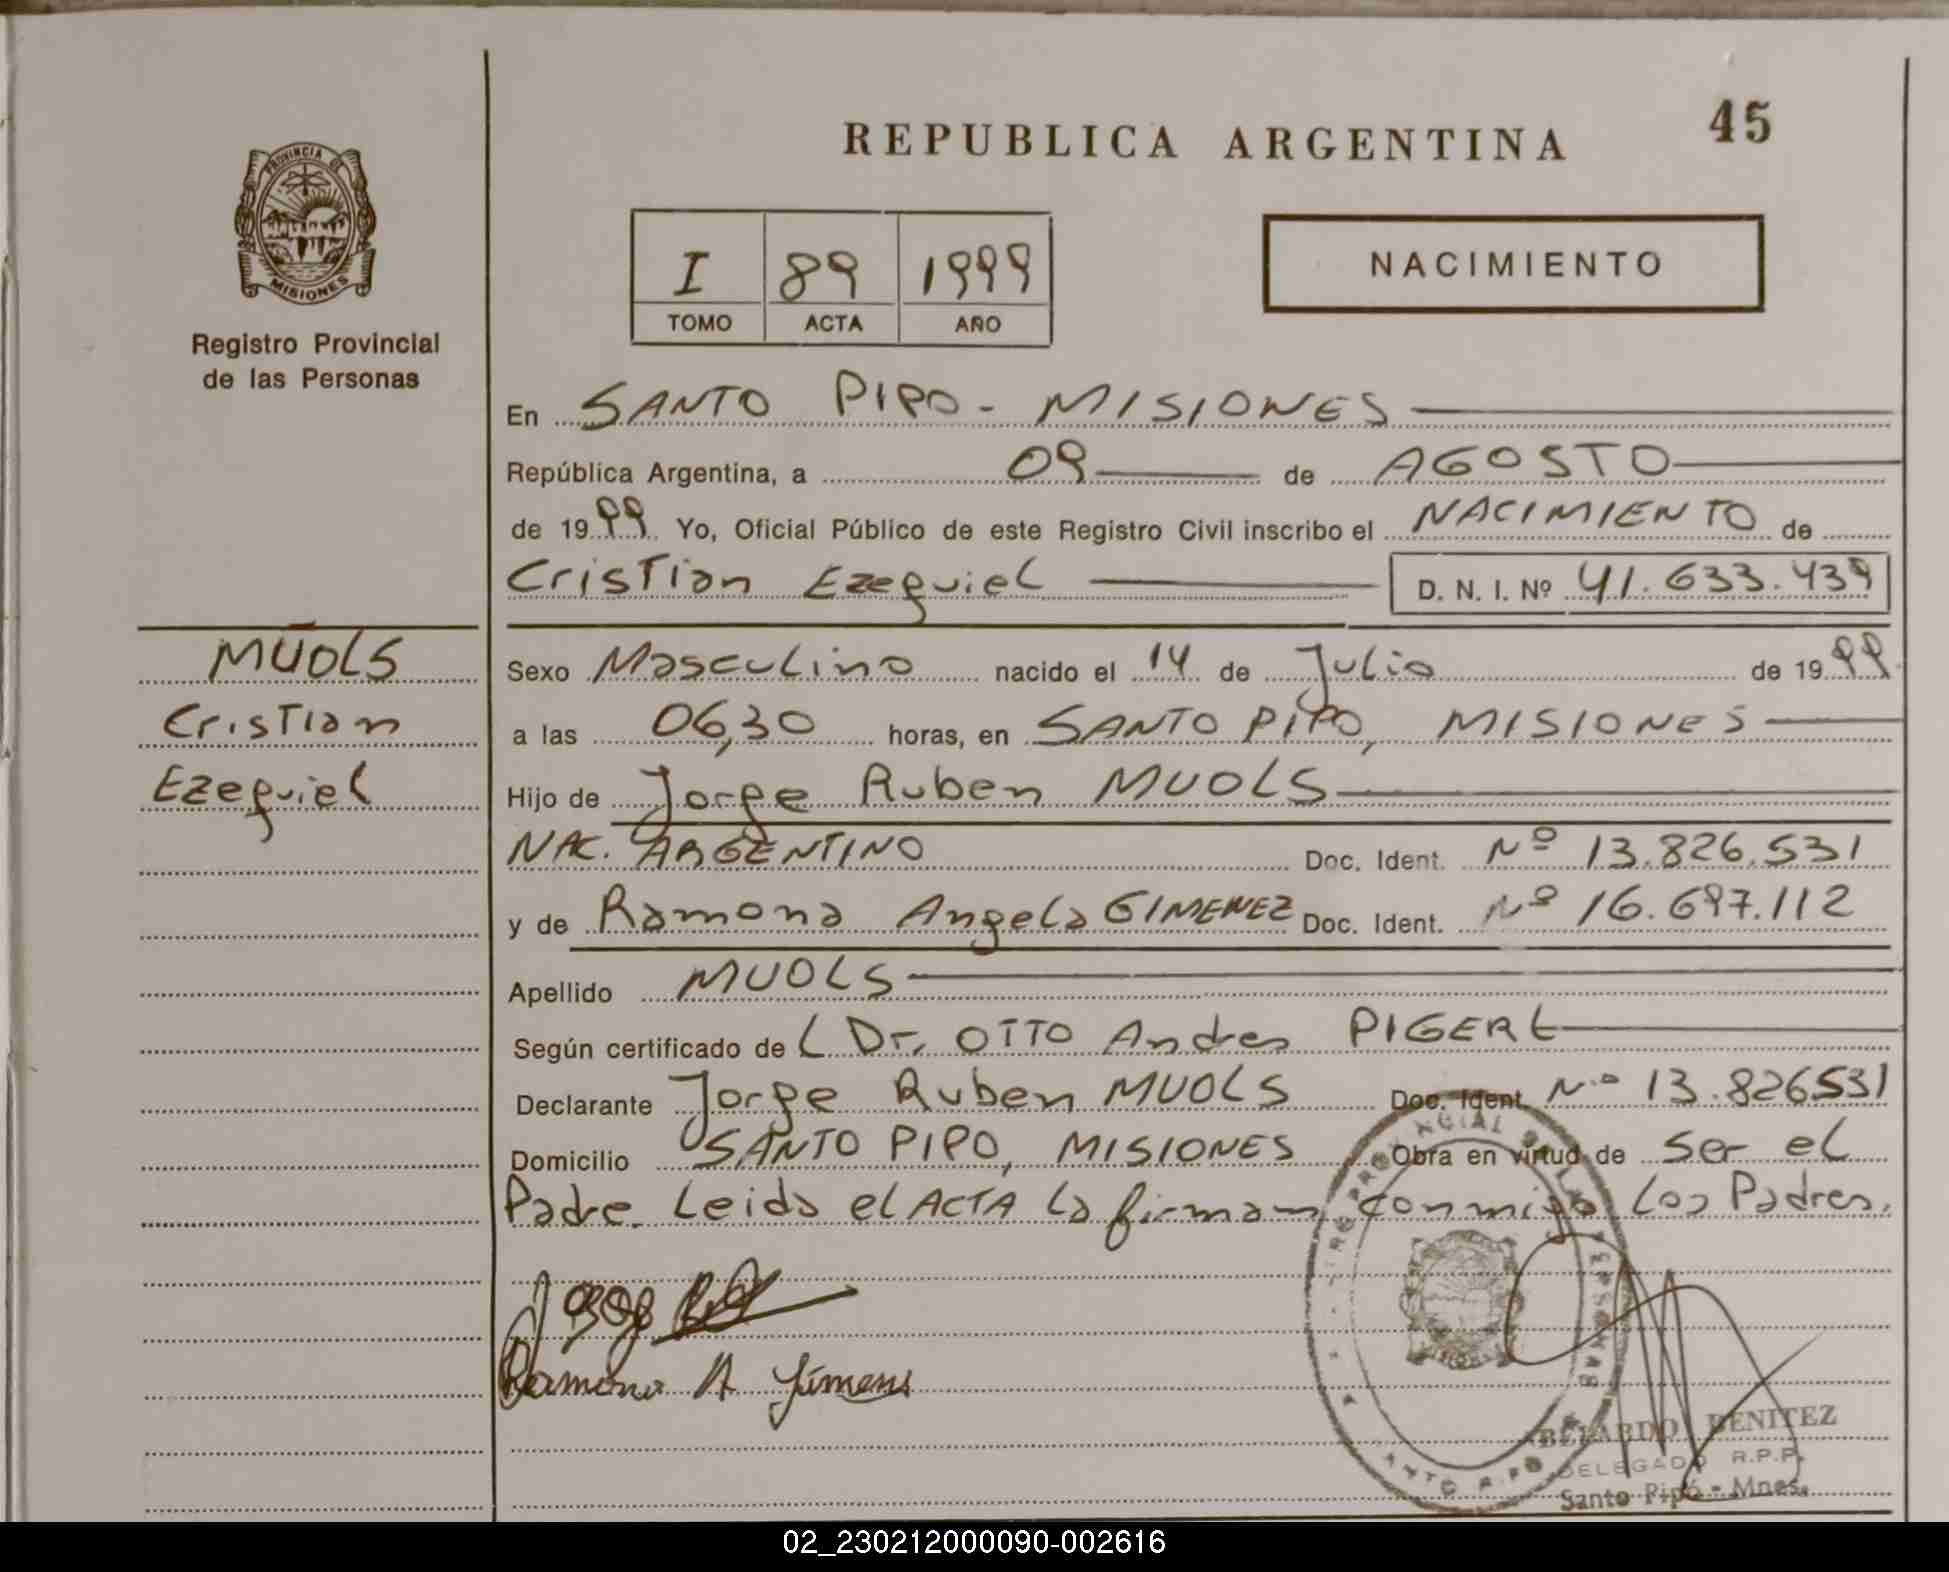 REPUBLICA ARGENTINA
45
PROVINCIA DE
MISIONES
Registro Provincial
de las Personas
I 89 1999
TOMO ACTA AÑO
NACIMIENTO
En SANTO PIPO - MISIONES
República Argentina, a 09 de AGOSTO
de 1999 Yo, Oficial Público de este Registro Civil inscribo el NACIMIENTO de
Cristian Ezequiel D. N. I. Nº 41.633.439
MUOLS
Cristian
Ezequiel
Sexo Masculino nacido el 14 de Julio de 1999
a las 06,30 horas, en SANTO PIPO, MISIONES
Hijo de Jorge Ruben MUOLS
NAC. ARGENTINO Doc. Ident. Nº 13.826.531
y de Ramona Angela GIMENEZ Doc. Ident. Nº 16.697.112
Apellido MUOLS
Según certificado de L Dr. OTTO Andres PIGERL
Declarante Jorge Ruben MUOLS Doc. Ident. Nº 13.826531
Domicilio SANTO PIPO, MISIONES Obra en virtud de ser el
Padre. Leida el ACTA la firman conmigo los Padres.
Ramona A Jimenes
ABELARDO BENITEZ
DELEGADO R.P.P.
Santo Pipó - Mnes.
02_230212000090-002616